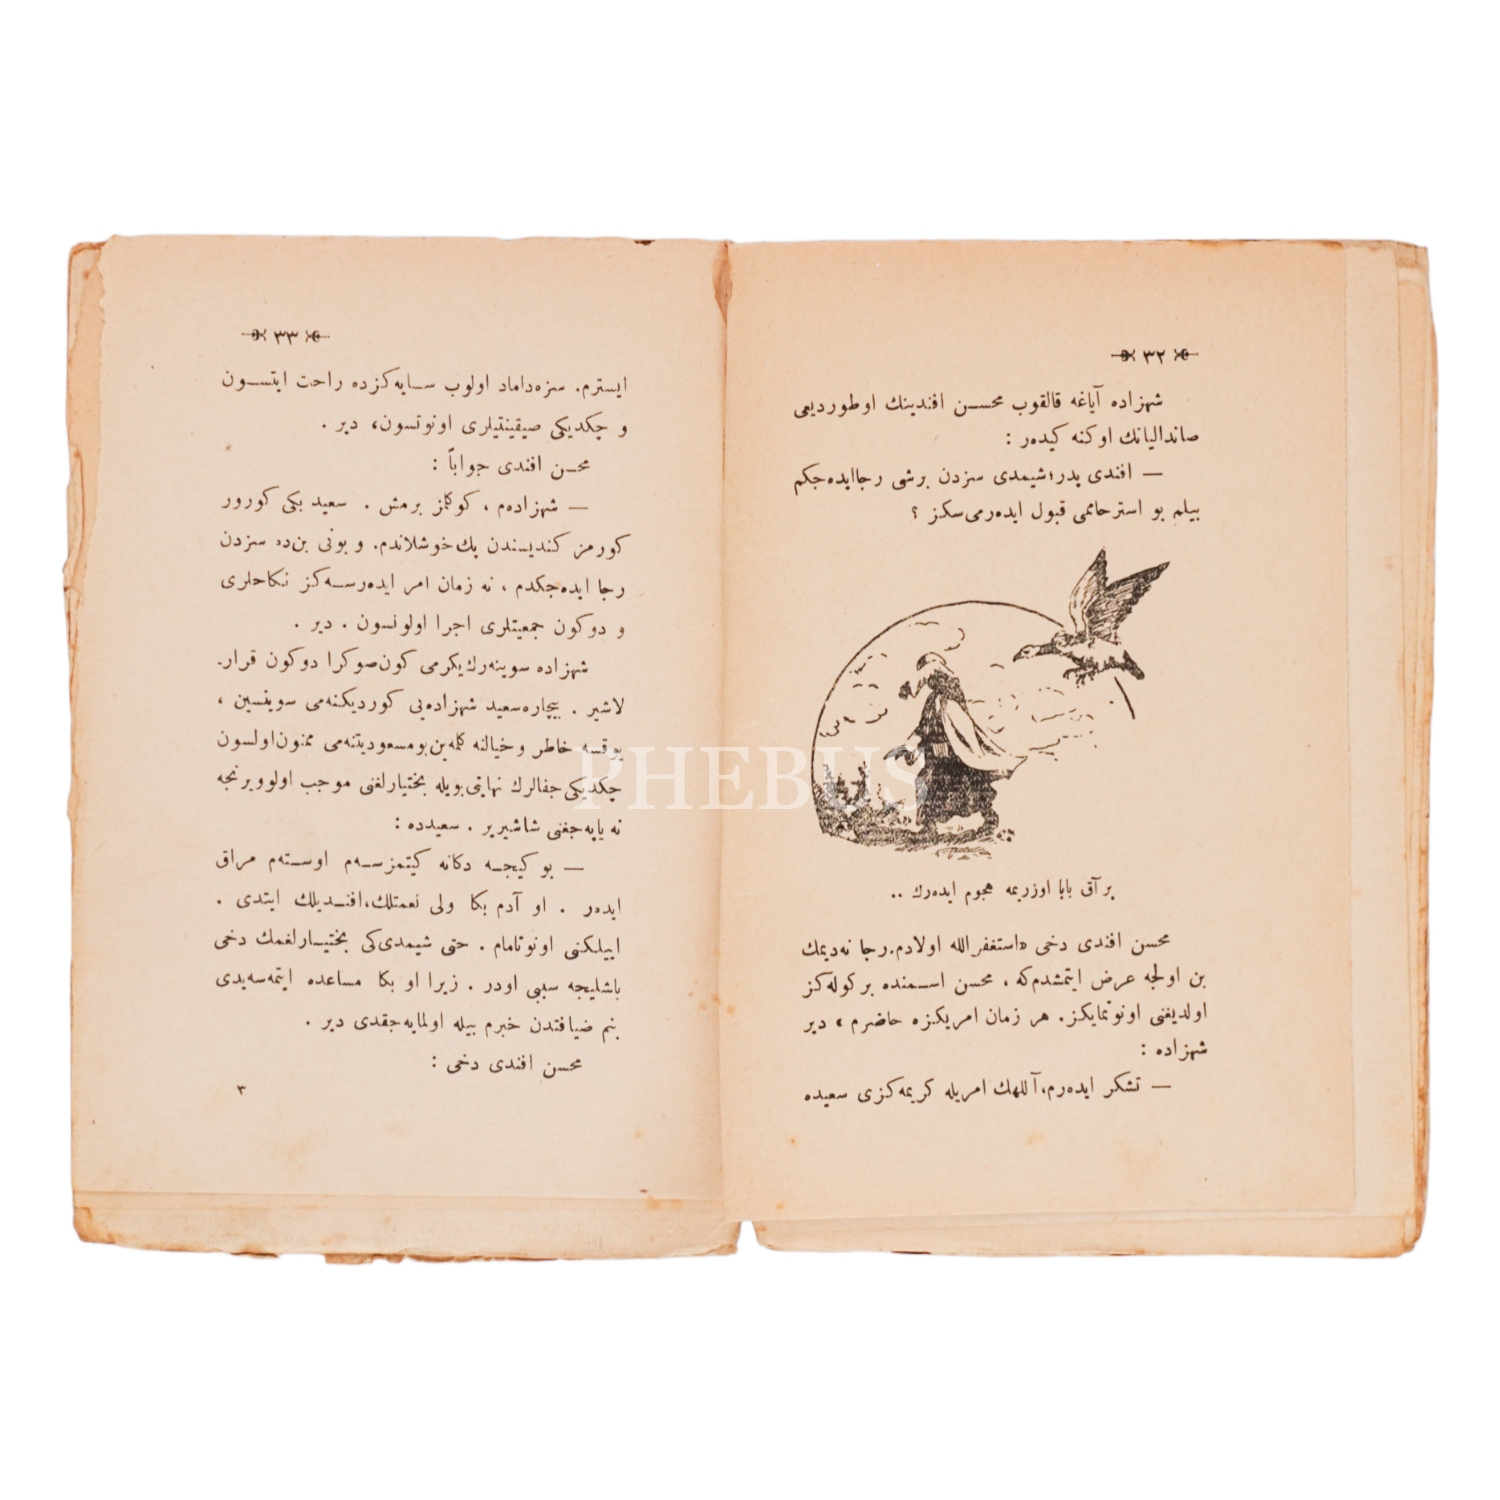 ٣٢
شهزاده آياغه قالقوب محسن افندينك اوطورديغى
صانداليانك اوكنه كيدەر :
— افندى پدر؛ شيمدى سزدن برشى رجا ايدەجكم
بيلم بو استرحاممى قبول ايدەرمى‌سكز ؟
بر آق بابا اوزريمه هجوم ايدەرك ..
محسن افندى دخى «استغفرالله اولادم. رجا نه‌ديمك
بن اولجه عرض ايتمشدم‌كه ، محسن اسـمنده بر كوله‌كز
اولديغنى اونوتمايكز. هر زمان امريكزه حاضرم» دير
شهزاده :
— تشكر ايدەرم، آللهك امريله كريمه‌كزى سعيده
٣٣
ايسترم. سزه‌داماد اولوب سـايه‌كزده راحت ايتسـون
و چكديكى صيقينتيلرى اونوتسون، دير .
محسن افندى جواباً :
— شهزاده‌م ، كوكلمز برمش . سعيد بكى كورور
كورمز كنديسندن پك‌خوشلاندم. و بونى بن‌ده سزدن
رجا ايدەجكدم ، نه زمان امر ايدەرسـه‌كز نكاحلرى
و دوكون جمعيتلرى اجرا اولونسون . دير .
شهزاده سوينه‌رك‌يكرمى كون‌صوكرا دوكون قرار.
لاشير . بيچاره‌سعيد شهزاده‌يى كورديكنه‌مى سوينسين ،
يوقسه خاطر و خيالنه كلمه‌ين‌بومسعوديتنه‌مى ممنون‌اولسون
چكديكى‌جفالرك نهايتى‌بويله بختيارلغنى موجب اولوويرنجه
نه ياپه‌جغنى شاشيرير . سعيدده :
— بو كيجـه دكانه كيتمزسـه‌م اوسـته‌م مراق
ايدەر . او آدم بكا ولى نعمتلك،افنـديلك ايتدى .
اييلكنى اونوتامام . حتى شيمدى‌كى بختيـارلغمك دخى
باشليجه سببى اودر . زيرا او بكا مساعده ايتمه‌سه‌يدى
بنم ضيافتدن خبرم بيله اولمايه‌جقدى دير .
محسن افندى دخى :
٣
PHEBUS